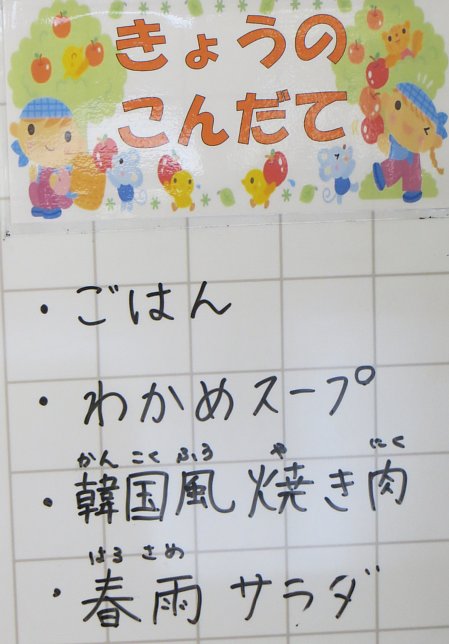 きょうの
こんだて
・ごはん
・わかめスープ
かん こく ふう や にく
・韓国風焼き肉
はる さめ
・春雨サラダ